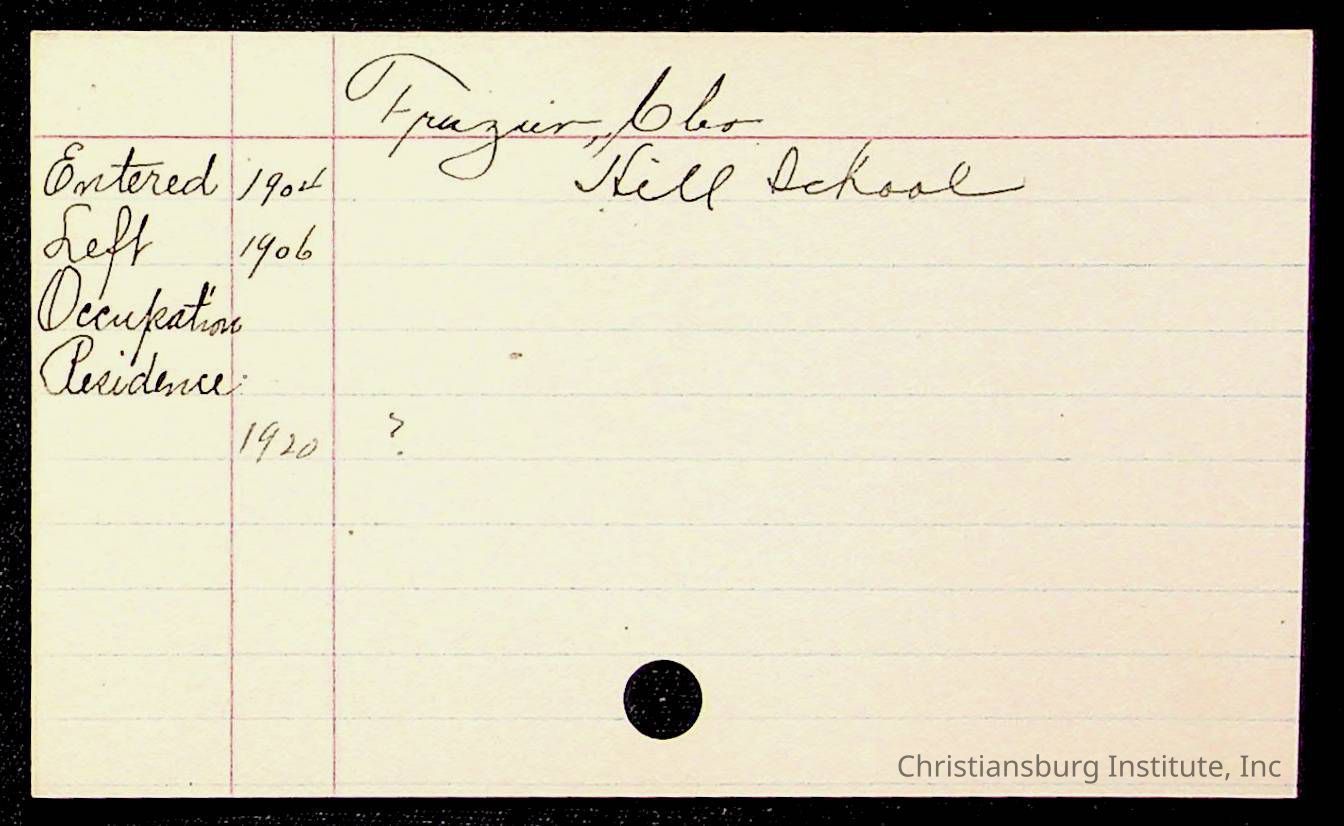 Frazier, Cleo
Hill School
Entered 1904
Left 1906
Occupation
Residence
1920 ?
Christiansburg Institute, Inc